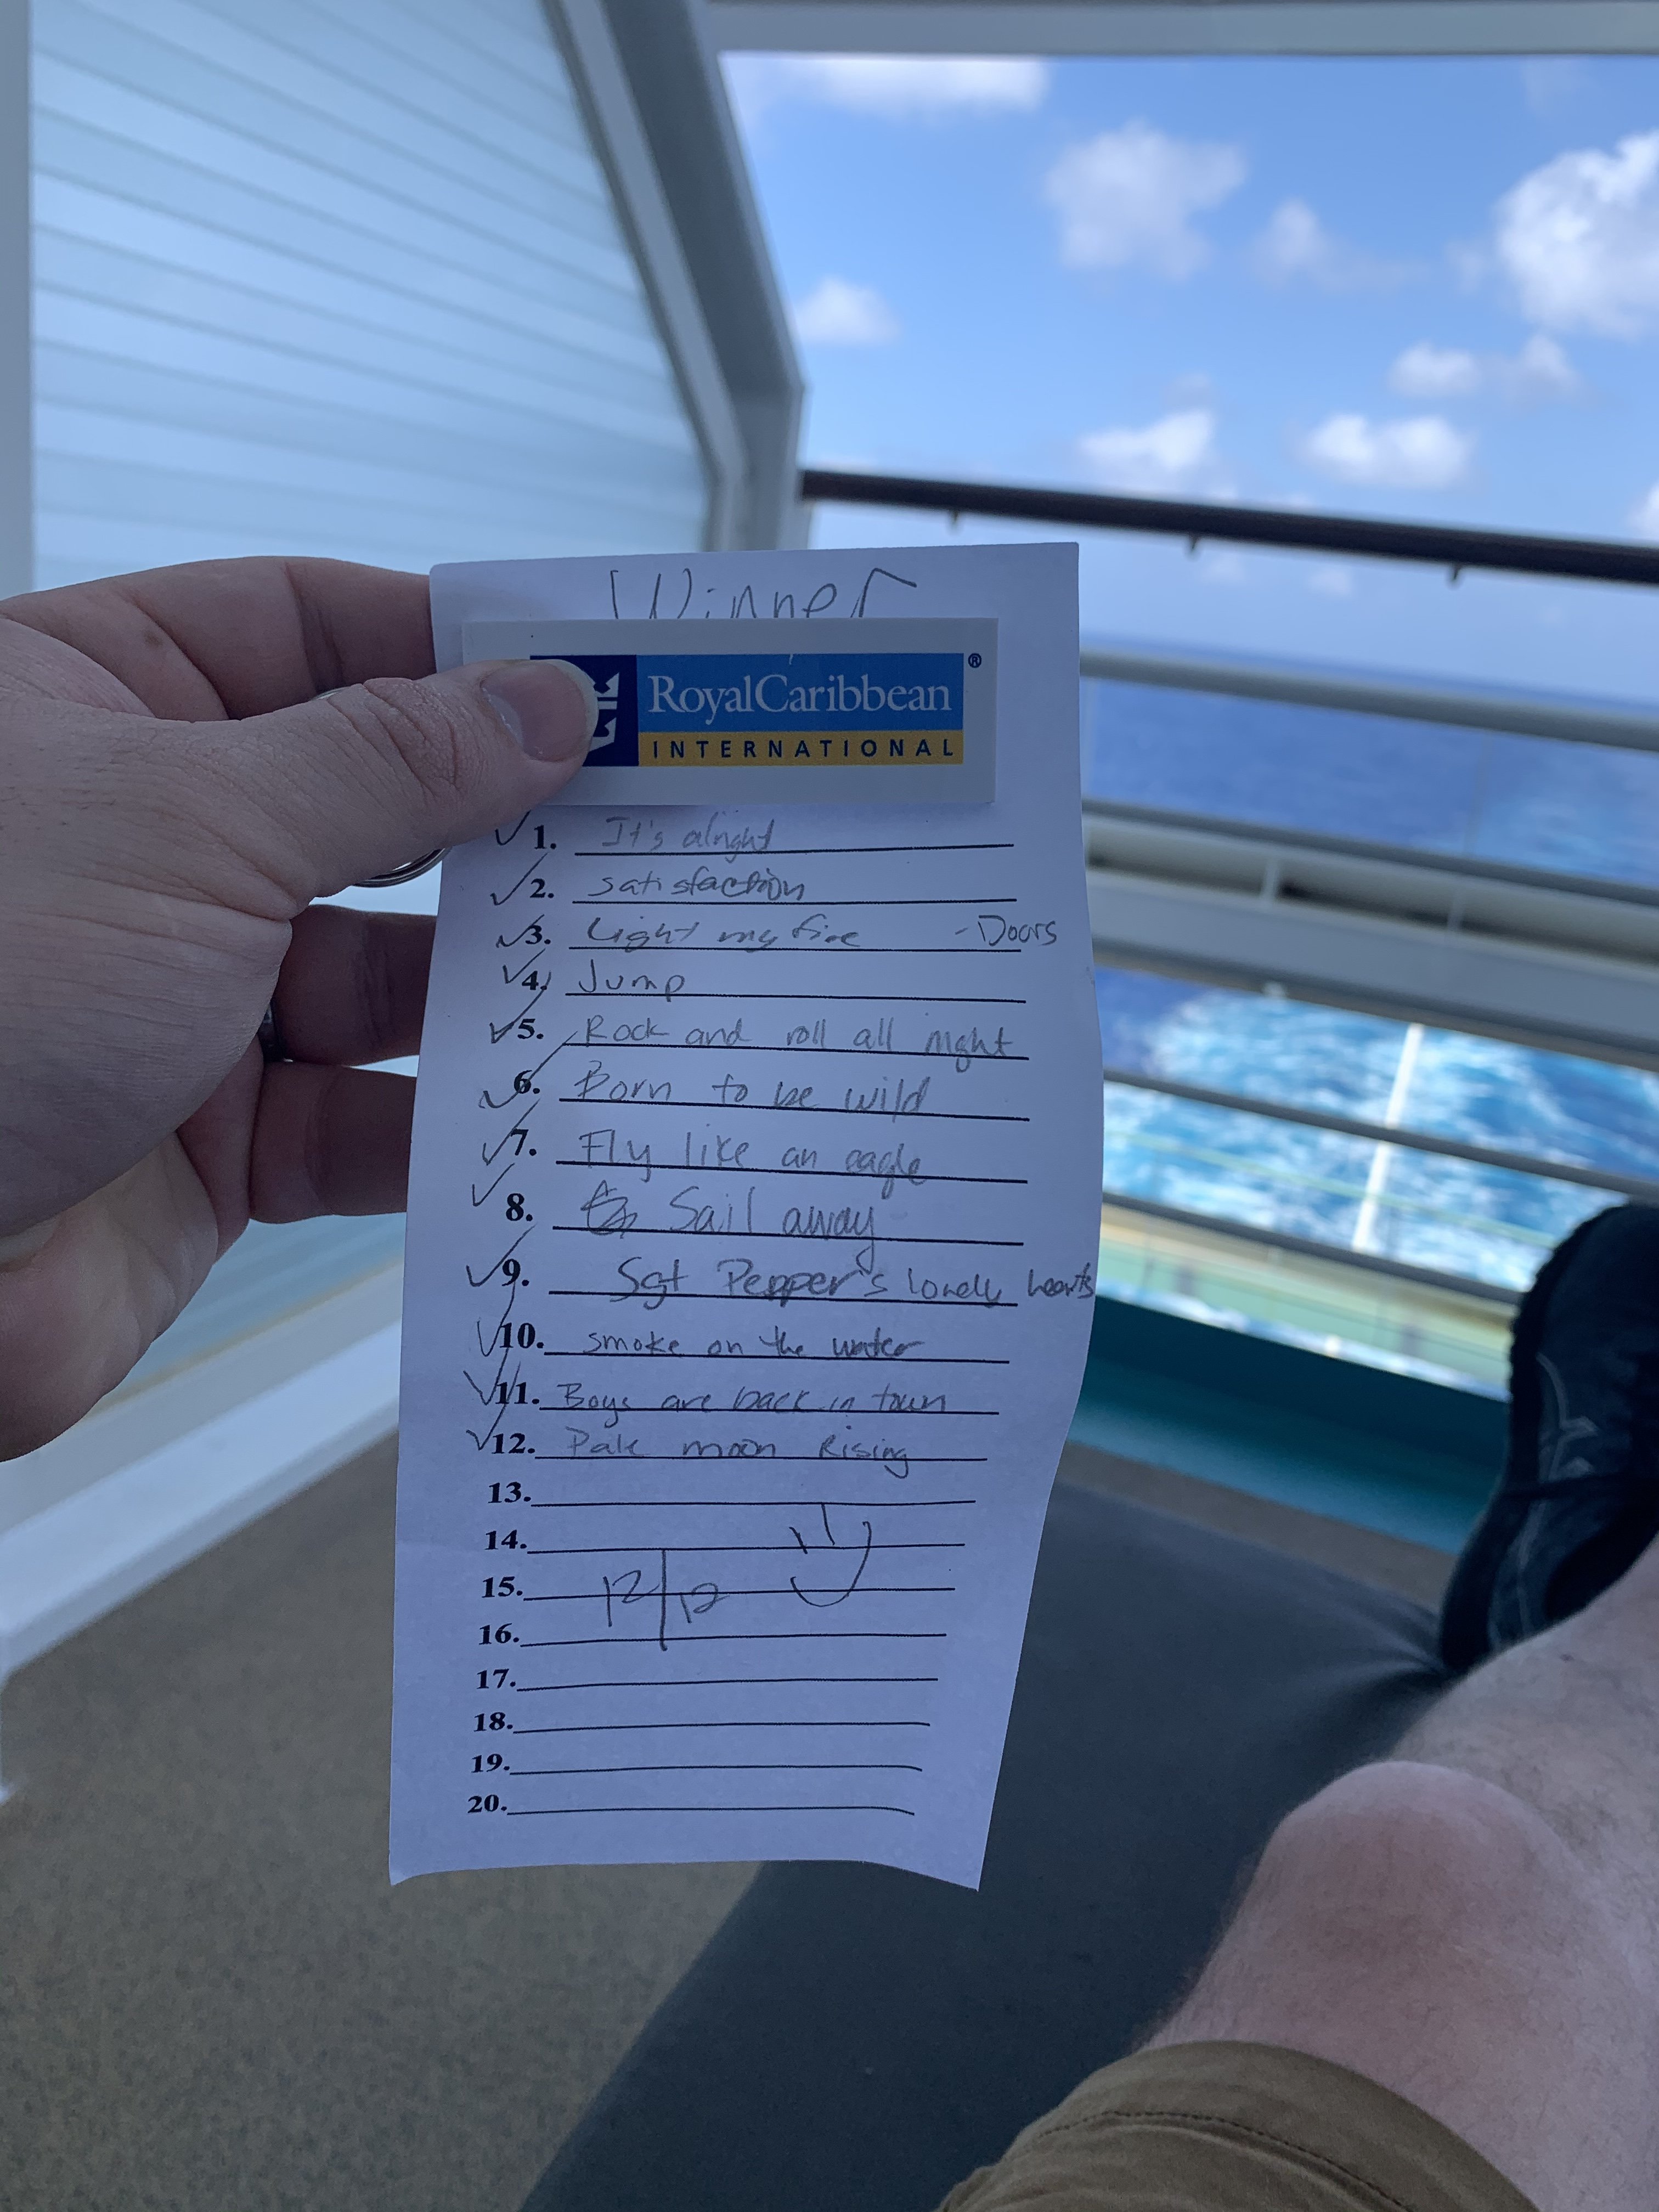 Winner
RoyalCaribbean ®
INTERNATIONAL
1. It's alright
2. satisfaction
3. Light my fire - Doors
4. Jump
5. Rock and roll all night
6. Born to be wild
7. Fly like an eagle
8. Sail away
9. Sgt Pepper's lonely hearts
10. smoke on the water
11. Boys are back in town
12. Pale moon Rising
13.
14.
15. 12/12
16.
17.
18.
19.
20.